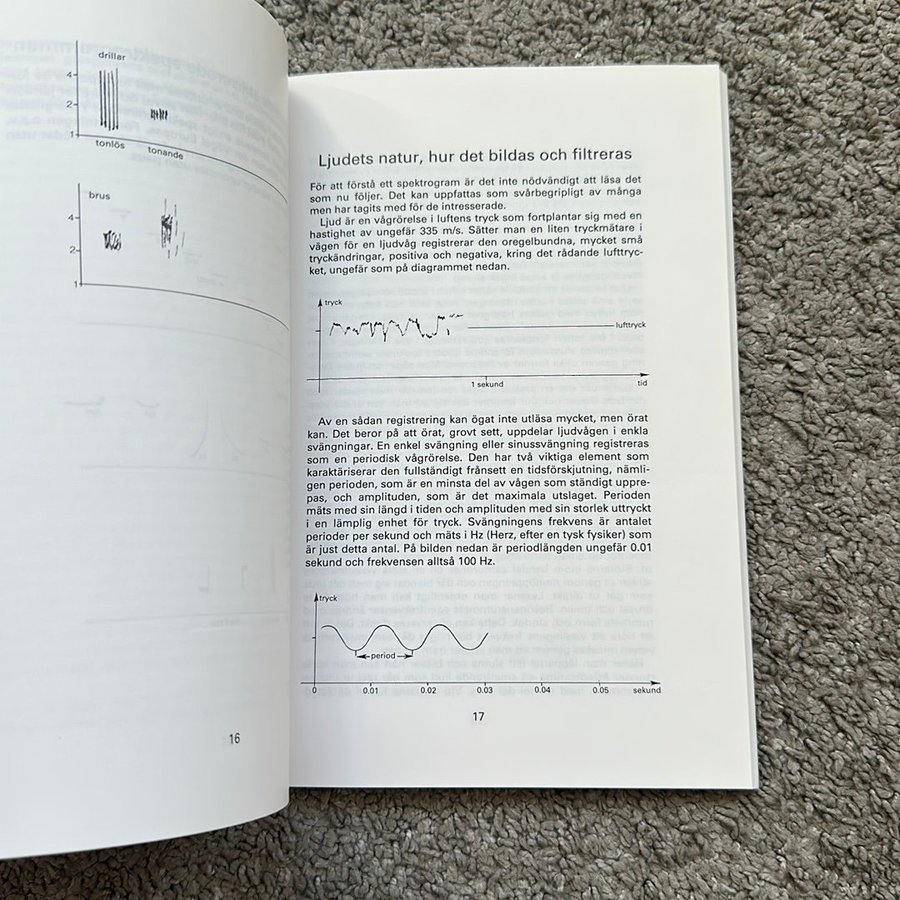 drillar
4
2
1
tonlös tonande
brus
4
2
1
16
Ljudets natur, hur det bildas och filtreras
För att förstå ett spektrogram är det inte nödvändigt att läsa det
som nu följer. Det kan uppfattas som svårbegripligt av många
men har tagits med för de intresserade.
Ljud är en vågrörelse i luftens tryck som fortplantar sig med en
hastighet av ungefär 335 m/s. Sätter man en liten tryckmätare i
vägen för en ljudvåg registrerar den oregelbundna, mycket små
tryckändringar, positiva och negativa, kring det rådande lufttryc-
ket, ungefär som på diagrammet nedan.
tryck
lufttryck
1 sekund
tid
Av en sådan registrering kan ögat inte utläsa mycket, men örat
kan. Det beror på att örat, grovt sett, uppdelar ljudvågen i enkla
svängningar. En enkel svängning eller sinussvängning registreras
som en periodisk vågrörelse. Den har två viktiga element som
karaktäriserar den fullständigt frånsett en tidsförskjutning, nämli-
gen perioden, som är en minsta del av vågen som ständigt uppre-
pas, och amplituden, som är det maximala utslaget. Perioden
mäts med sin längd i tiden och amplituden med sin storlek uttryckt
i en lämplig enhet för tryck. Svängningens frekvens är antalet
perioder per sekund och mäts i Hz (Herz, efter en tysk fysiker) som
är just detta antal. På bilden nedan är periodlängden ungefär 0.01
sekund och frekvensen alltså 100 Hz.
tryck
period
0 0.01 0.02 0.03 0.04 0.05 sekund
17